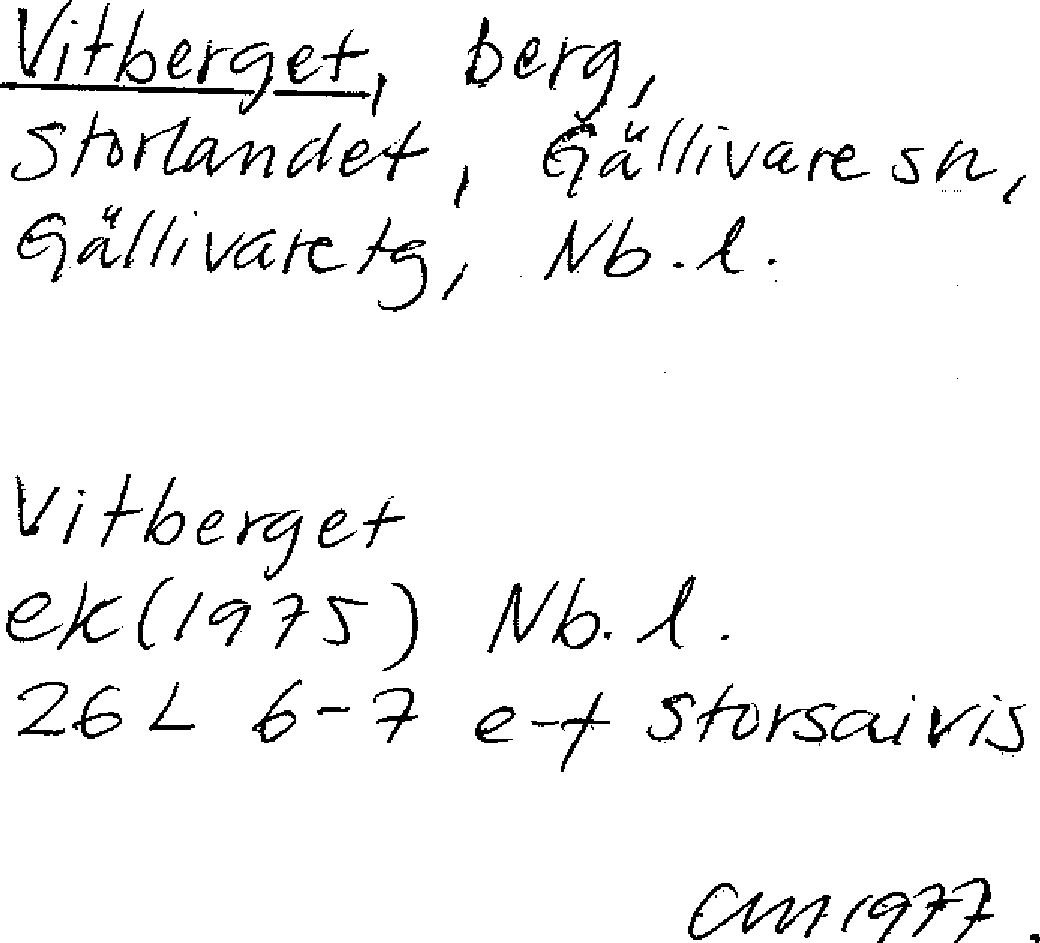 Vitberget, berg,
Storlandet, Gällivare sn,
Gällivare tg, Nb. l.
Vitberget
ek (1975) Nb. l.
26 L 6-7 e-f Storsaivis
CM 1977.